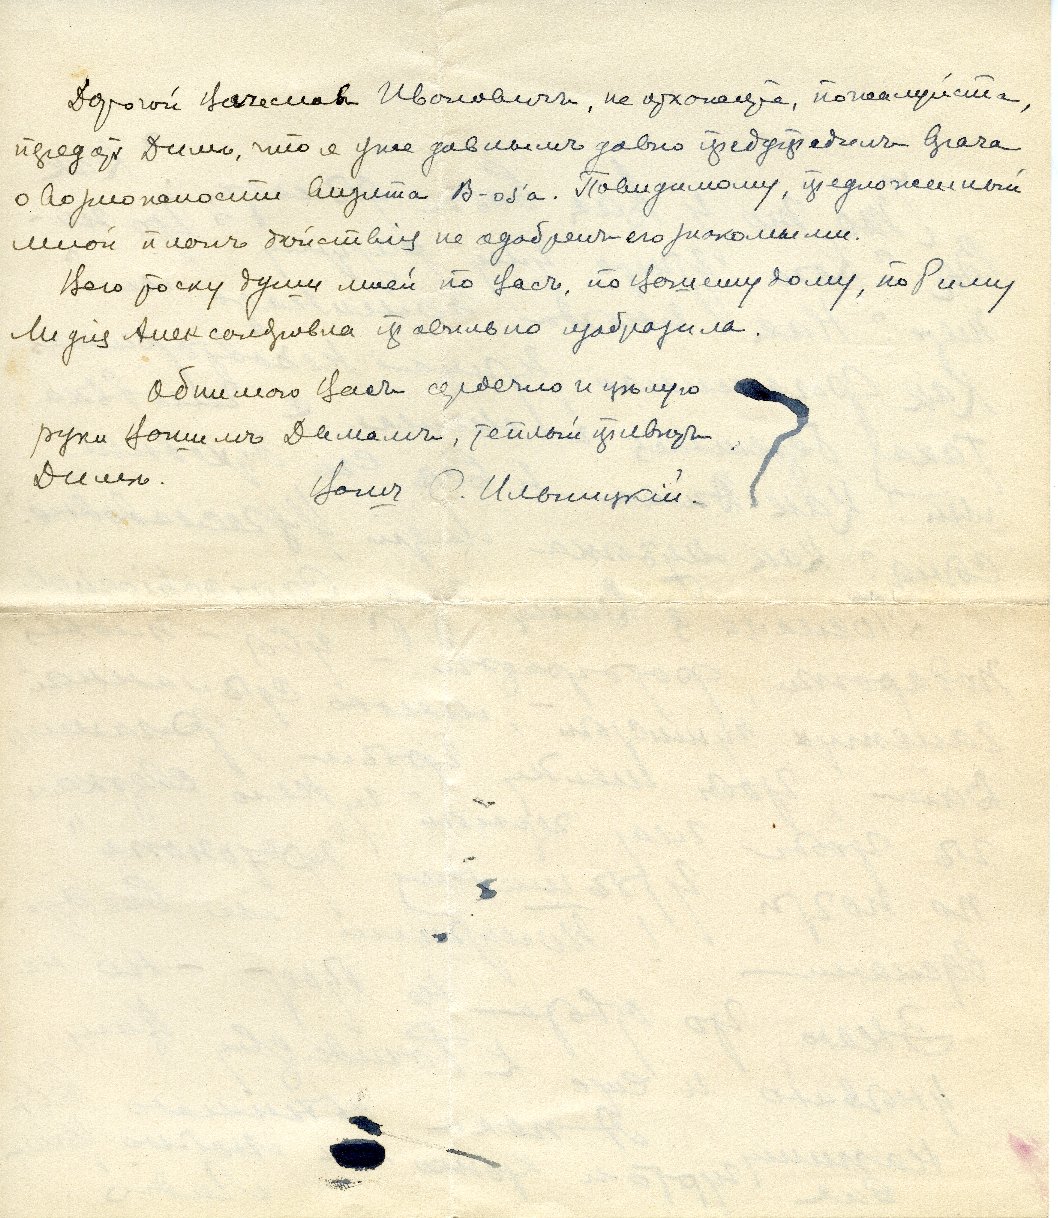 Дорогой Вячеслав Ивановичъ, не откажите, пожалуйста,
передать Димѣ, что я уже давнымъ давно предупредилъ врача
о возможности визита В-ов'а. Повидимому, предложенный
мной планъ дѣйствія не одобренъ его знакомыми.
Всю тоску души моей по Васъ, по Вашему дому, по Риму
Лидія Александровна правильно изобразила.
Обнимаю Васъ сердечно и цѣлую
руки Вашимъ Дамамъ, теплый привѣтъ
Димѣ.
Вашъ С. Ильницкій.